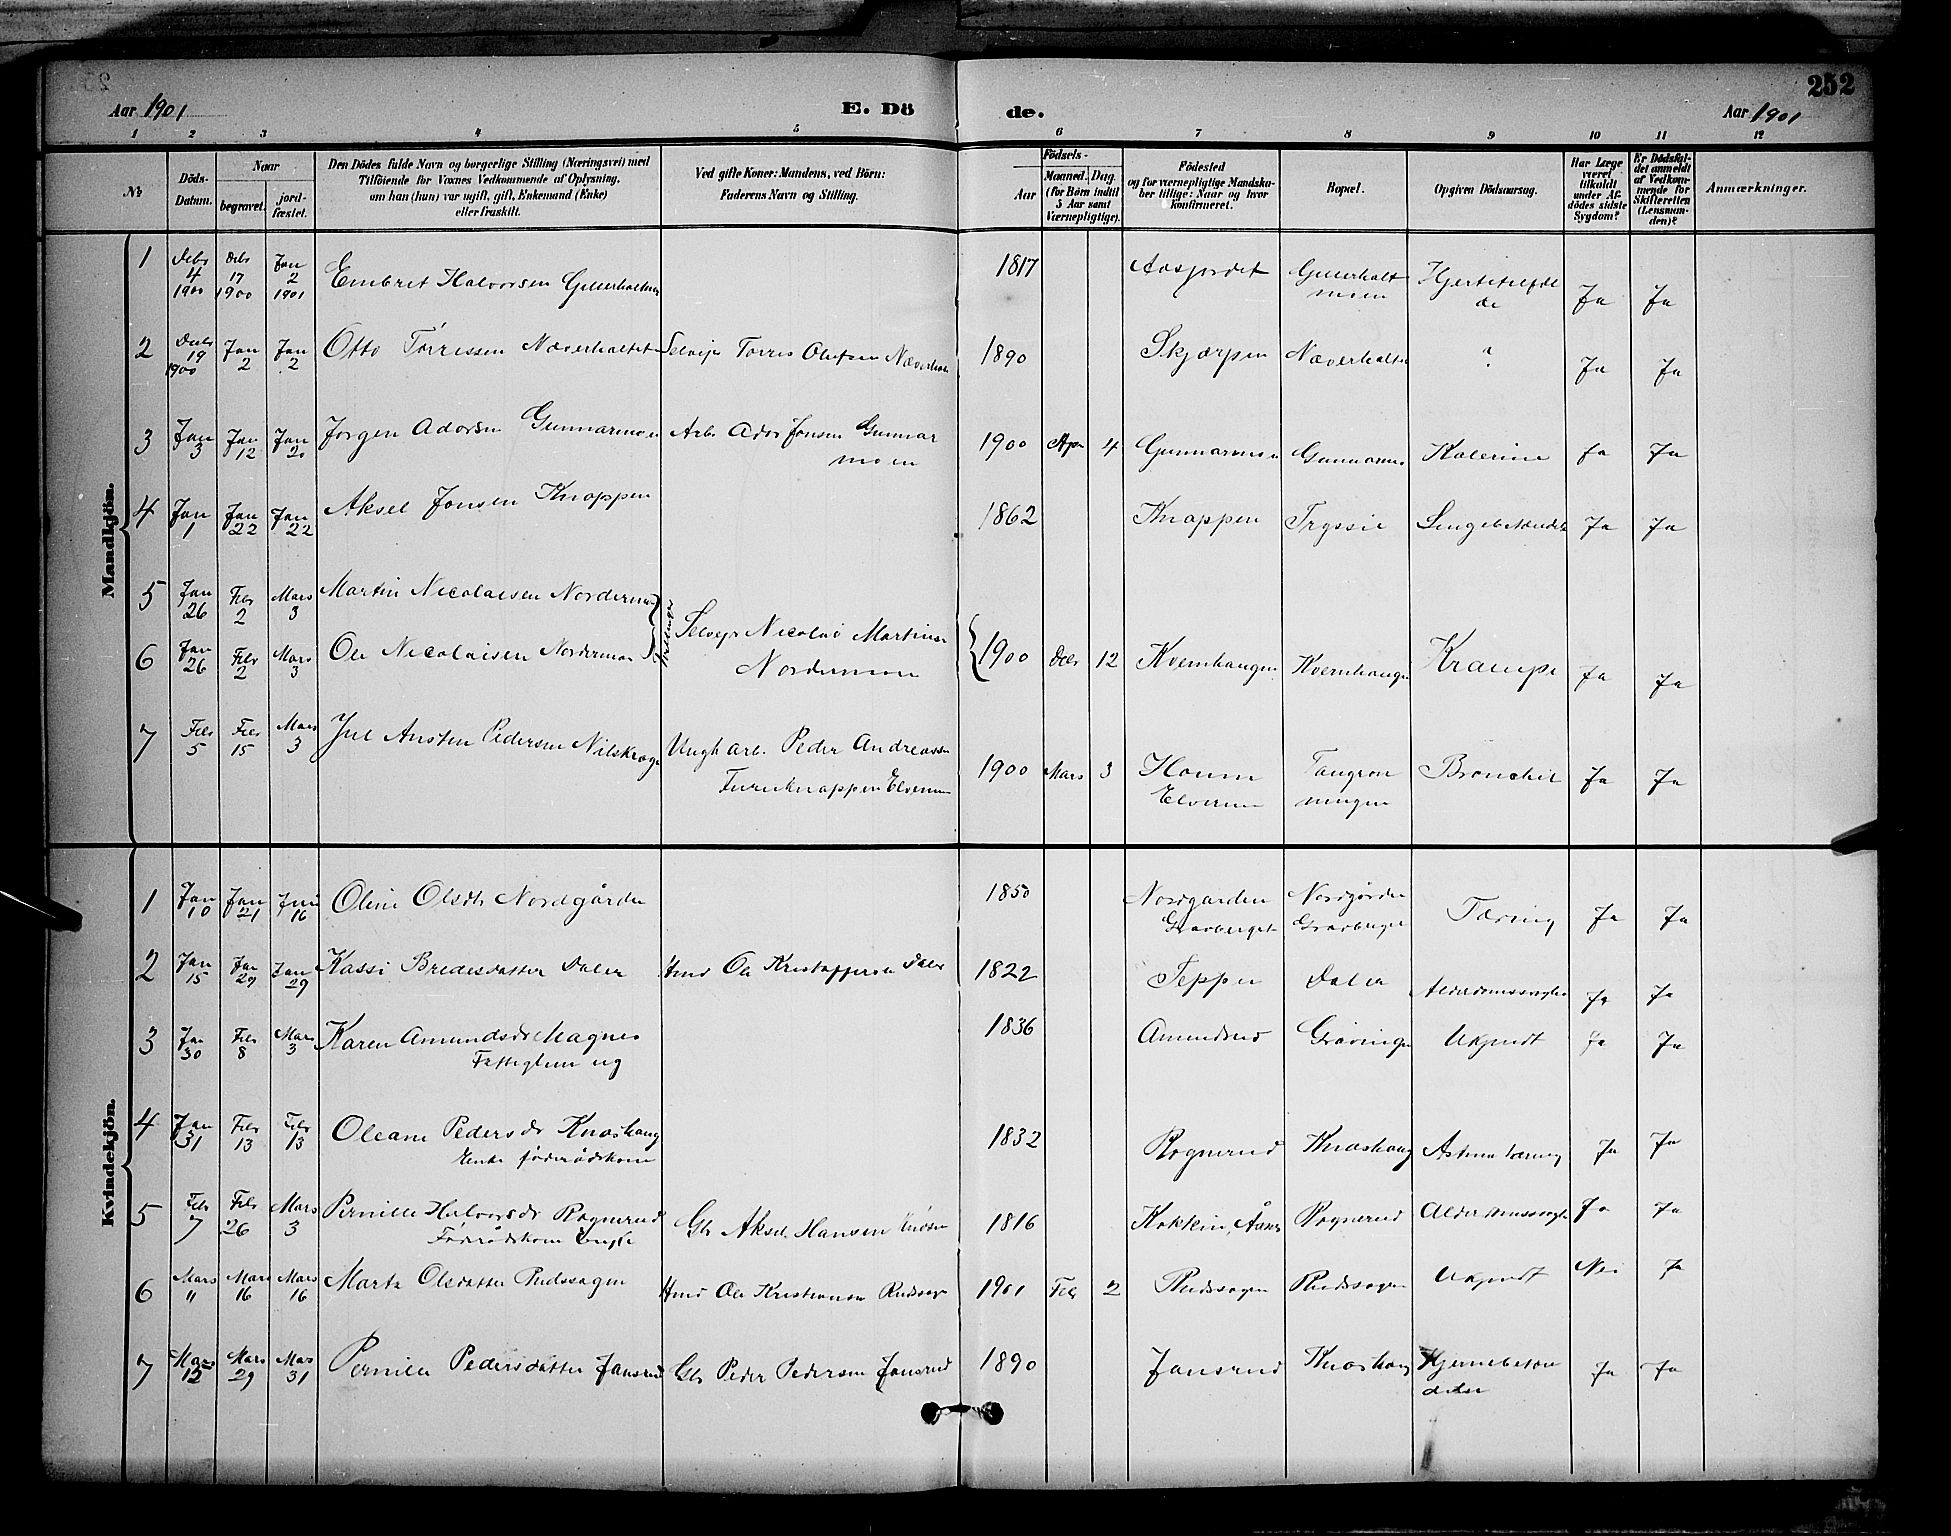 252
Aar 1901 E. Dö de. Aar 1901
1 2 3 4 5 6 7 8 9 10 11 12
№ Döds-Datum. Naar begravet. jord-fæstet. Den Dödes fulde Navn og borgerlige Stilling (Næringsvei) med Tilföiende for Voxnes Vedkommende af Oplysning, om han (hun) var ugift, gift, Enkemand (Enke) eller fraskilt. Ved gifte Koner: Mandens, ved Börn: Faderens Navn og Stilling. Födsels- Aar Maaned. Dag. (for Börn indtil 5 Aar samt Værnepligtige). Födested og for værnepligtige Mandska-ber tillige: Naar og hvor konfirmeret. Bopæl. Opgiven Dödsaarsag. Har Læge været tilkaldt under Af-dödes sidste Sygdom? Er Dödsfal-det anmeldt af Vedkom-mende for Skifteretten (Lensman-den)? Anmærkninger.
Mandkjön.
1 Debr 4 1900 Debr 17 1900 Jan 2 1901 Embret Halvorsen 1817 Aasjordet Hjertefeil Ja Ja
2 Debr 19 1900 Jan 2 Jan 2 Otto Törrissen Næverholtet Selvejr Torris Olufsen 1890 Skjærpen Næverholtet " Ja Ja
3 Jan 3 Jan 12 Jan 20 Jorgen Adorsen Gunnarmoen Arbr Ador Jonsen Gunnar moen 1900 Apr 4 Gunnarmoen Gunnarmo Kolerine Ja Ja
4 Jan 1 Jan 22 Jan 22 Aksel Jonsen Knappen 1862 Knappen Trysil Ja Ja
5 Jan 26 Febr 2 Mars 3 Martin Nicolaisen Nordermoen
Tvillinger Selvejr Nicolai Martinsen Nordermoen
6 Jan 26 Febr 2 Mars 3 Ole Nicolaisen Nordermoen 1900 Debr 12 Kvernhaugen Kvernhaugen Krampe Ja Ja
7 Febr 5 Febr 15 Mars 3 Jul Austen Pedersen Ungk arb. Peder Andreassen
Furuknappen Elverum 1900 Mars 3 Hernes Elverum Ja Ja
Kvindekjön.
1 Jan 10 Jan 21 Juni 16 Oline Olsdtr Nordgården 1850 Nordgarden Graaberget Nordgården Graaberget Tæring Ja Ja
2 Jan 15 Jan 29 Jan 29 Kassi Bredesdatter Dalen Hmd Ole Kristoffersen Dalen 1822 Teppen Dalen Alderdomssvaghed Ja Ja
3 Jan 30 Febr 8 Mars 3 Karen Amundsdr Magnes
Fattiglem ug 1836 Amundrud Ukjendt Ja Ja
4 Jan 31 Febr 13 Febr 13 Oleane Pedersdr Knashaug
Enke föderådskone 1832 Rognerud Knashaug Astma tæring Ja Ja
5 Febr 7 Febr 26 Mars 3 Pernille Halvorsdr Rognerud
Föderådskone Enke Gbr Aksel Hansen 1816 Kokkin, Åsnes Rognerud Alderdomssvaghed Ja Ja
6 Mars 11 Mars 16 Mars 16 Marta Olsdatter Rudssagen Hmd Ole Kristiansen Rudssagen 1901 Febr 2 Rudssagen Rudssagen Ukjendt Nei Ja
7 Mars 12 Mars 29 Mars 31 Pernille Pedersdatter Jansrud Gbr Peder Pedersen Jansrud 1890 Jansrud Knashaug Hjernebetændelse Ja Ja